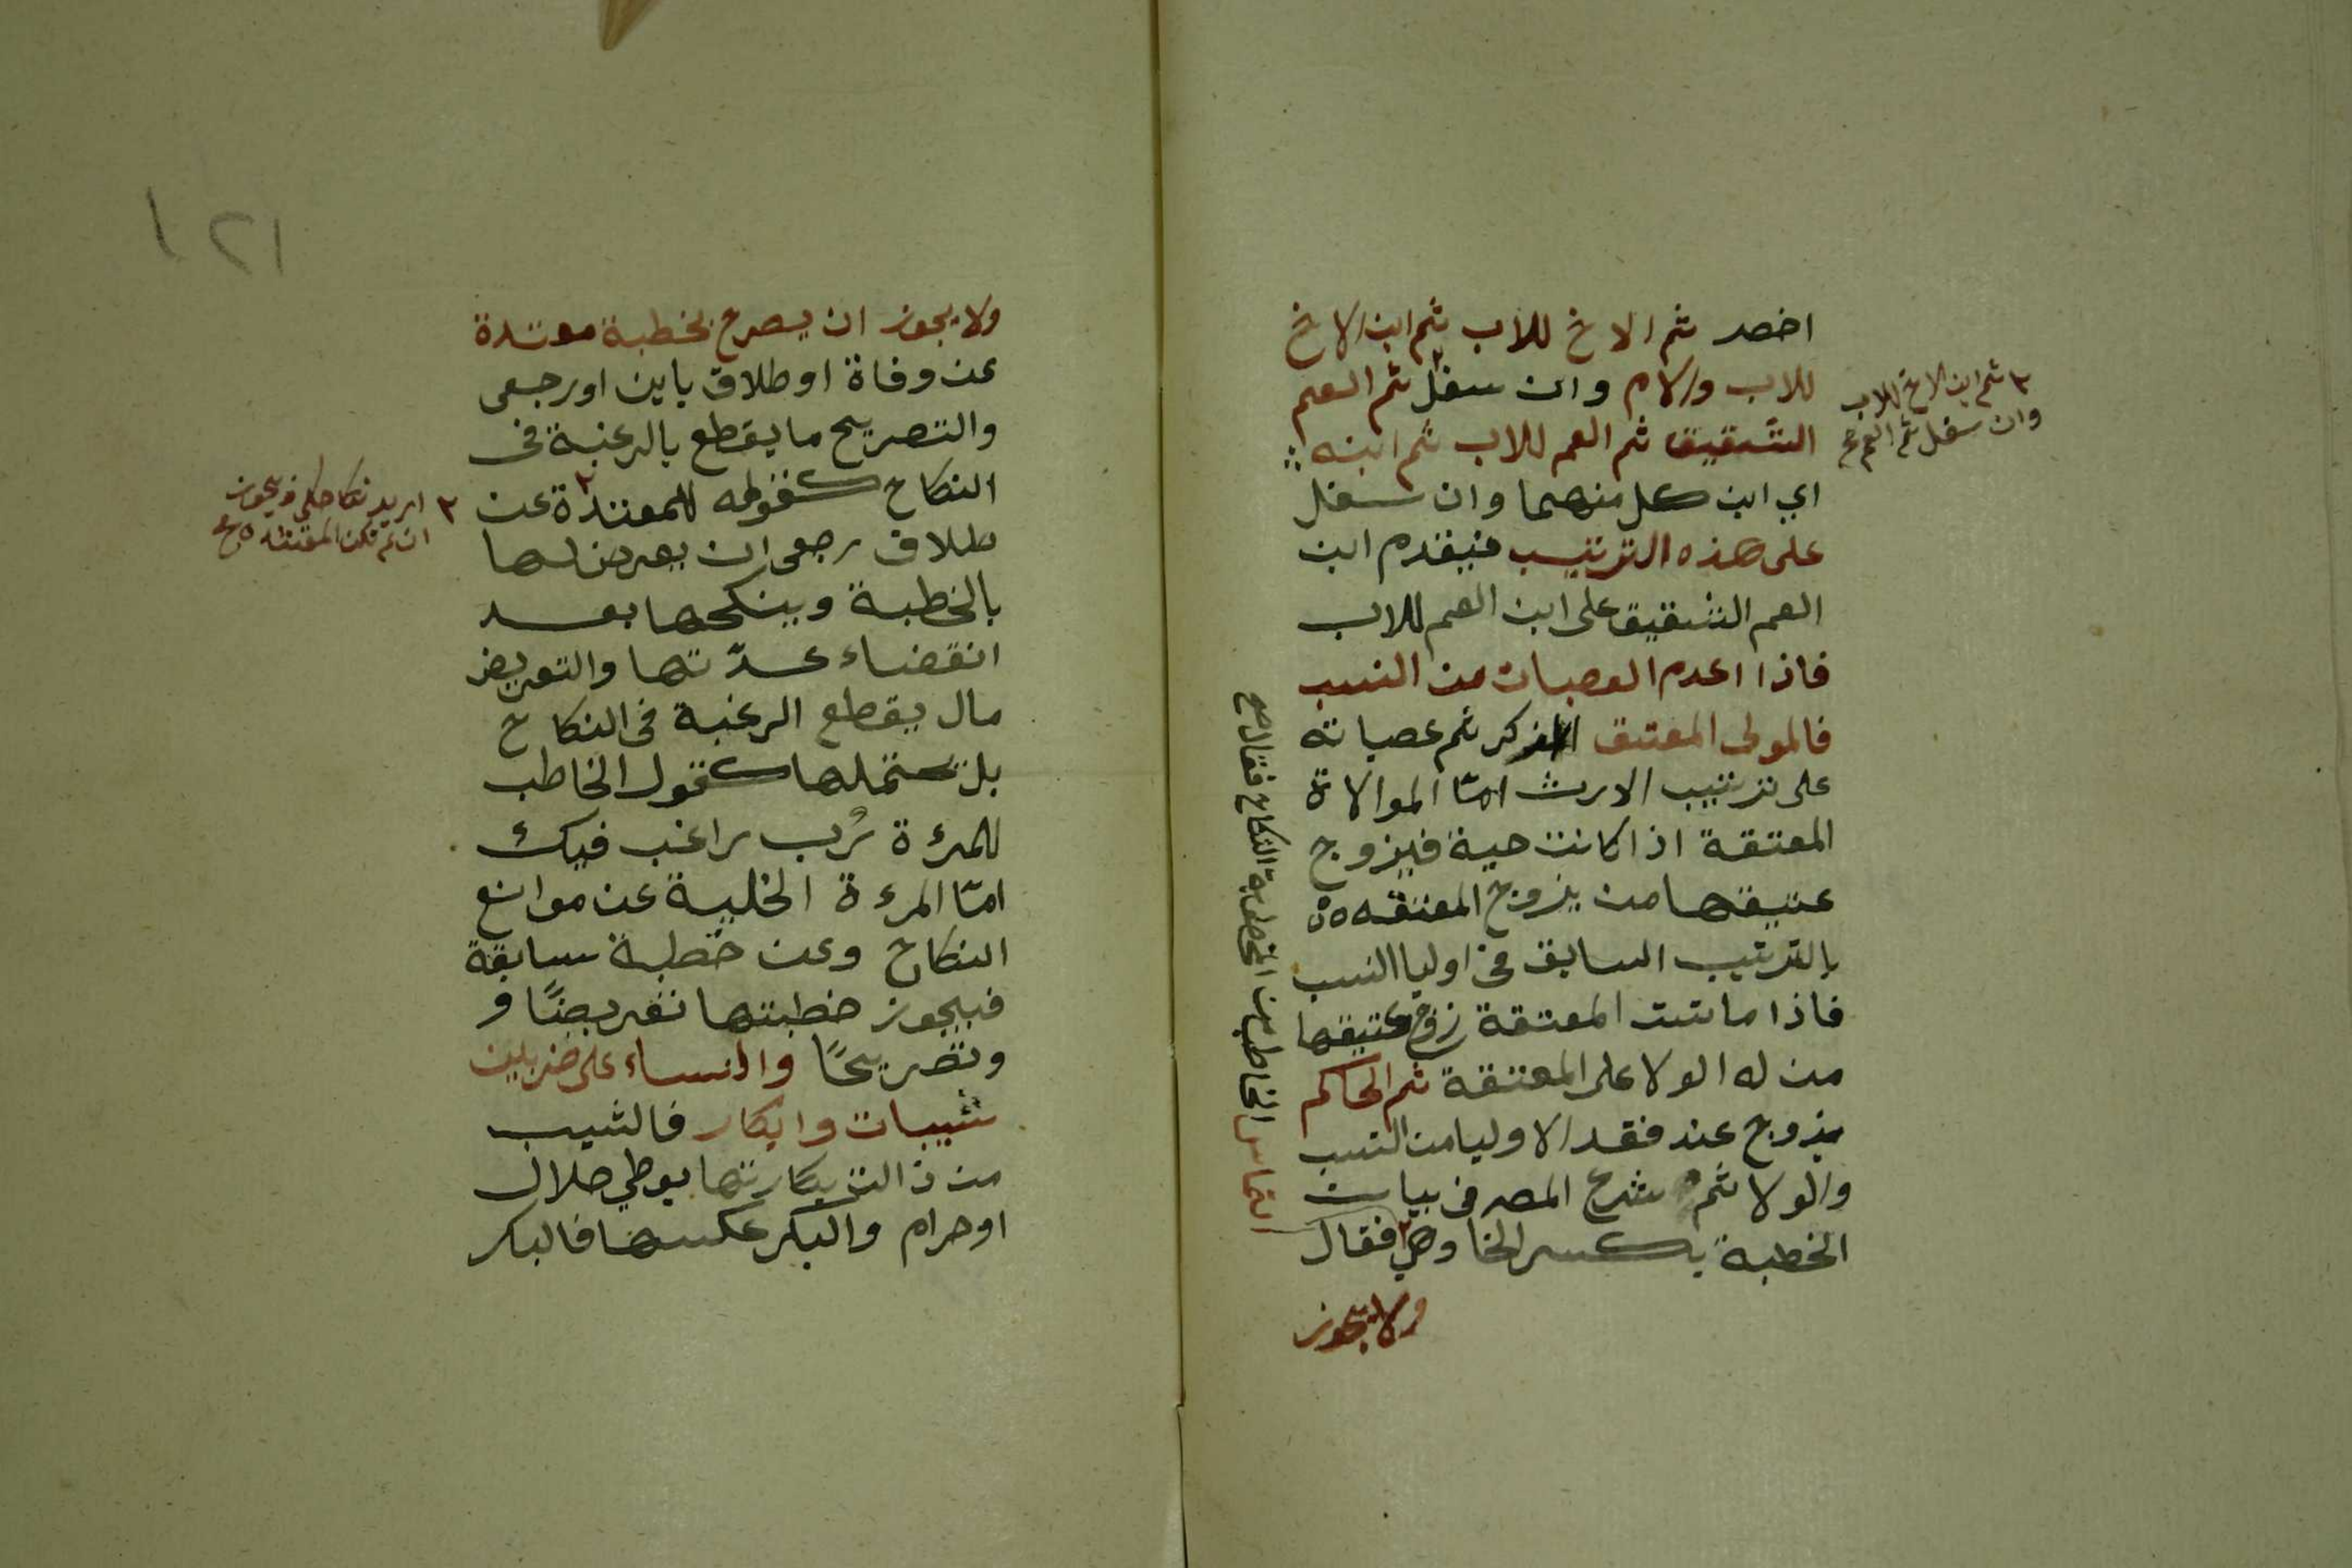 اخصر ثم الاخ للاب ثم ابن الاخ
للاب والام وان سفل ثم العم
الشقيق ثم العم للاب ثم ابنه
اي ابن كل منهما وان سفل
على هذه الترتيب فيقدم ابن
العم الشقيق على ابن العم للاب
فاذا اعدم العصبات من النسب
فالمولى المعتق الذكر ثم عصباته
على ترتيب الارث امّا الموالاة
المعتقة اذا كانت حية فيزوج
عتيقها من يزوج المعتقه
بالترتيب السابق في اوليا النسب
فاذا ماتت المعتقة زوج عتيقها
من له الولا على المعتقة ثم الحاكم
يزوج عند فقد الاوليا من النسب
والولا ثم شرع المصر في بيان
الخطبة بكسر الخا وهي فقال
ولا يجوز
٢ ثم ابن الاخ للاب
وان سفل ثم العم صح
التماس الخاطب من المخطوبة النكاح فقال صح
١٢١
ولا يجوز ان يصرح بخطبة معتدة
عن وفاة او طلاق باين او رجعى
والتصريح ما يقطع بالرغبة في
النكاح كقوله للمعتدة عن
طلاق رجعى ان يعرض لها
بالخطبة وينكحها بعد
انقضاء عدّتها والتعريض
مال يقطع الرغبة في النكاح
بل تحتملها كقول الخاطب
للمرءة رُب راغب فيك
امّا المرءة الخلية عن موانع
النكاح وعن خطبة سابقة
فيجوز خطبتها تعريضًا و
وتصريحًا والنساء على ضربين
ثيبات وابكار فالثيب
من زالت بكارتها بوطي حلال
او حرام والبكر عكسها فالبكر
٢ اريد نكاحك فيجوز
ان لم تكن المعتدة صح